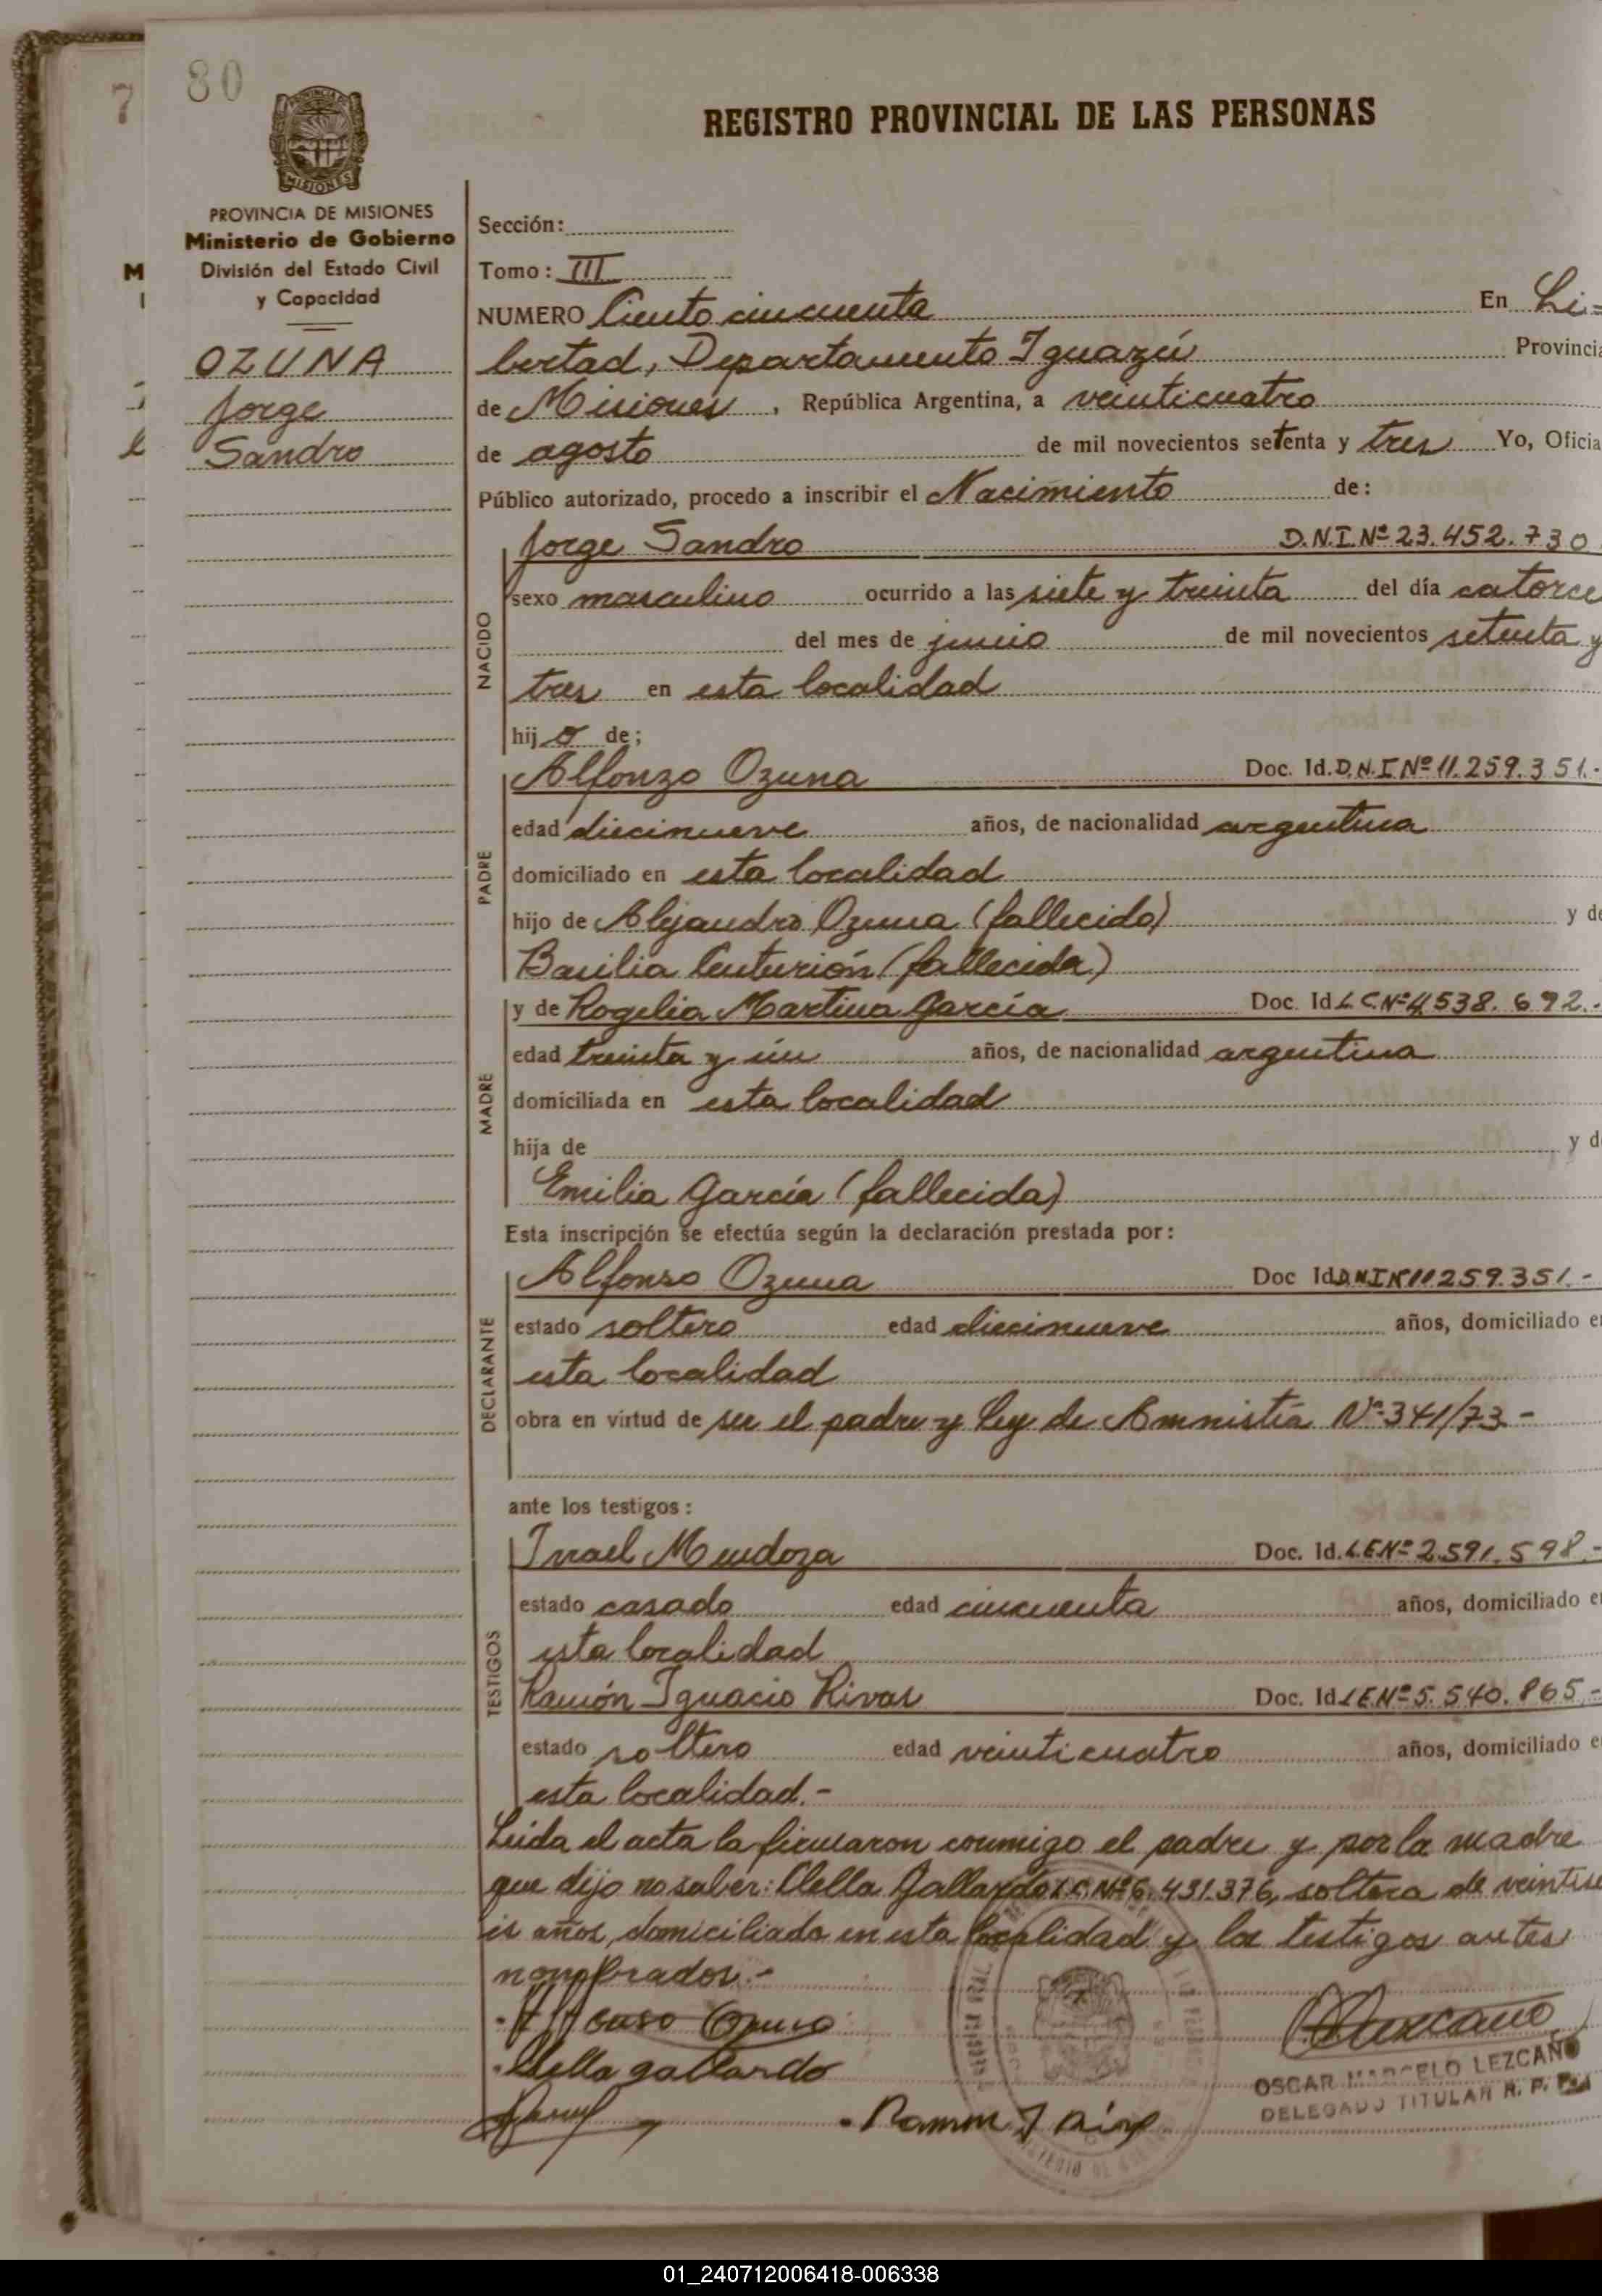 7
80
REGISTRO PROVINCIAL DE LAS PERSONAS
PROVINCIA DE MISIONES
MISIONES
PROVINCIA DE MISIONES
Ministerio de Gobierno
División del Estado Civil
y Capacidad
OZUNA
Jorge
Sandro
Sección:
Tomo: III
NUMERO Ciento cincuenta En Li=
bertad, Departamento Iguazú Provincia
de Misiones, República Argentina, a veinticuatro
de agosto de mil novecientos setenta y tres Yo, Oficia
Público autorizado, procedo a inscribir el Nacimiento de:
NACIDO
Jorge Sandro D.N.I. Nº 23.452.730
sexo masculino ocurrido a las siete y treinta del día catorce
del mes de junio de mil novecientos setenta y
tres en esta localidad
hijo de;
PADRE
Alfonzo Ozuna Doc. Id. D.N.I Nº 11.259.351.-
edad diecinueve años, de nacionalidad argentina
domiciliado en esta localidad
hijo de Alejandro Ozuna (fallecido) y de
Basilia Centurión (fallecida)
MADRE
y de Rogelia Martina García Doc. Id L.C. Nº 4.538.692.-
edad treinta y ún años, de nacionalidad argentina
domiciliada en esta localidad
hija de y d
Emilia García (fallecida)
Esta inscripción se efectúa según la declaración prestada por:
DECLARANTE
Alfonso Ozuna Doc Id D.N.I Nº 11259.351.-
estado soltero edad diecinueve años, domiciliado e
esta localidad
obra en virtud de ser el padre y Ley de Amnistía Nº 341/73.-
ante los testigos:
TESTIGOS
Israel Mendoza Doc. Id. L.E Nº 2.591.598.-
estado casado edad cincuenta años, domiciliado e
esta localidad
Ramón Ignacio Rivas Doc. Id L.E. Nº 5.540.865.-
estado soltero edad veinticuatro años, domiciliado e
esta localidad.-
Leida el acta la firmaron conmigo el padre y por la madre
que dijo no saber: Clella Gallardo L.C. Nº 6.431.376, soltera de veintise
is años, domiciliada en esta localidad y los testigos antes
nombrados.-
Alfonso Ozuna
Clella gallardo
Ramon I
Lezcano
OSCAR MARCELO LEZCANO
DELEGADO TITULAR R. P. P.
01_240712006418-006338